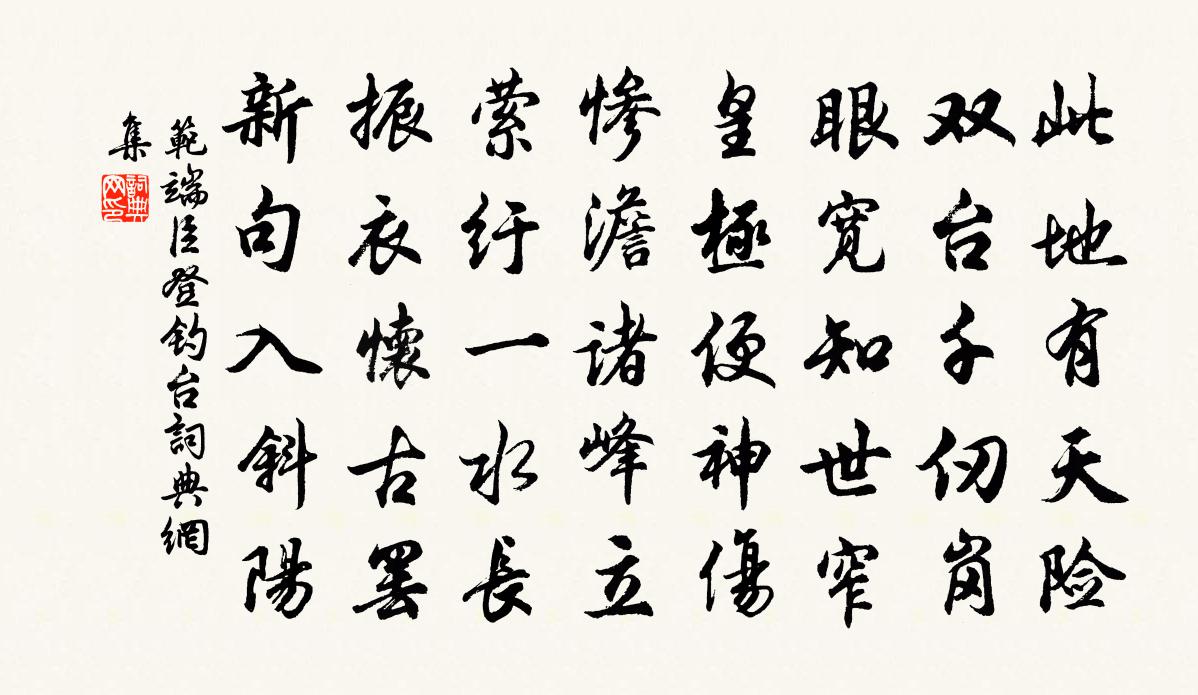 此地有天险
双台千仞岗
眼宽知世窄
皇極便神傷
惨澹诸峰立
萦纡一水長
振衣懷古罢
新句入斜陽
範端臣登钓台詞典網
集
詞典网印